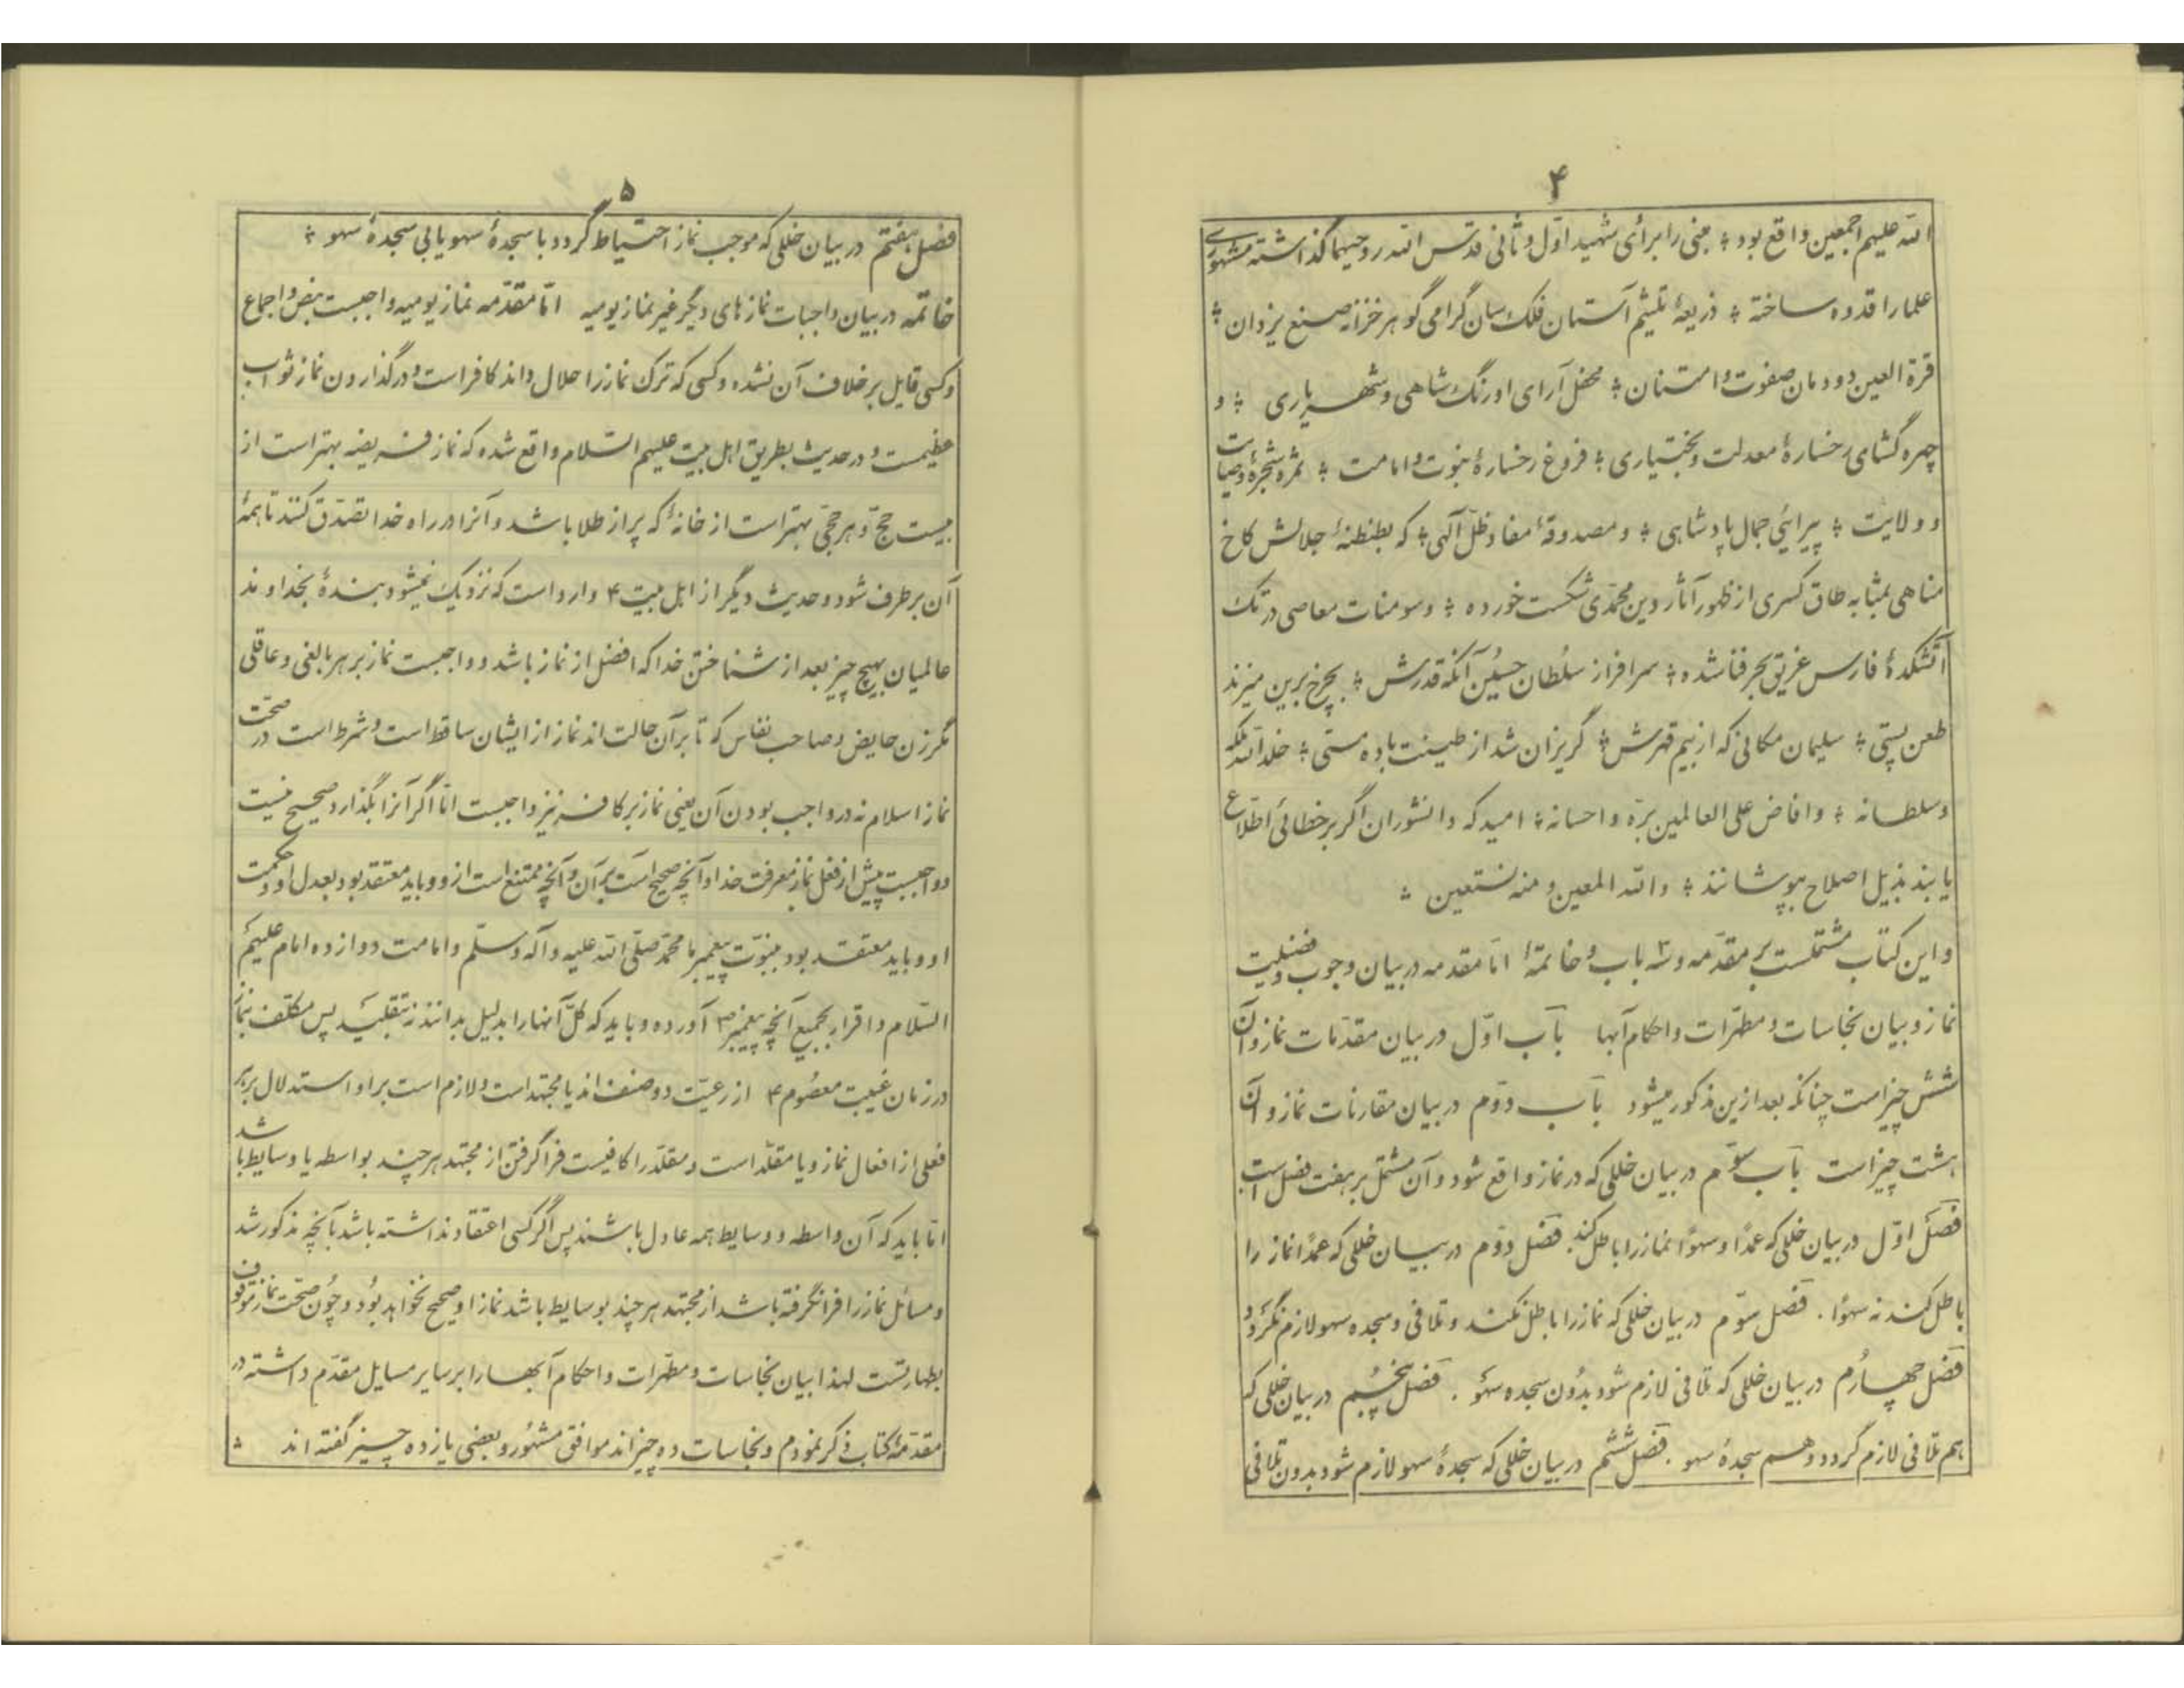 ۴
الله علیهم اجمعین واقع بود ؛ مبنی را برای شهید اول و ثانی قدس الله روحیهما گذاشته مشهوری
علما را قدوه ساخته ؛ ذریعهٔ تلثیم آستان فلک سان گرامی گوهر خزانه صنع یزدان ؛
قرة العین دودمان صفوت و امتنان ؛ محفل آرای اورنگ شاهی و شهریاری ؛ و
چهره گشای رخسارهٔ معدلت و بختیاری ؛ فروغ رخسارهٔ نبوت و امامت ؛ ثمره شجرهٔ وصایت
و ولایت ؛ پیرائی جمال پادشاهی ؛ و مصدوقهٔ مفاد ظل آلهی ؛ که بطنطنهٔ جلالش کاخ
مناهی بمثابه طاق کسری از ظهور آثار دین محمدی شکست خورده ؛ و سومنات معاصی در تک
آتشکدهٔ فارس غریق بحر فنا شده ؛ سرافراز سلطان حسین آنکه قدرش ؛ بچرخ برین میزند
طعن پستی ؛ سلیمان مکانی که از بیم قهرش ؛ گریزان شد از طینت باده مستی ؛ خلد الله ملکه
وسلطانه ؛ وافاض علی العالمین بره و احسانه ؛ امید که دانشوران اگر بر خطائی اطلاع
یابند بذیل اصلاح بپوشانند ؛ والله المعین و منه نستعین ؛
و این کتاب مشتملست بر مقدمه و ۳ باب و خاتمهٔ اما مقدمه در بیان وجوب و فضلیت
نماز و بیان نجاسات و مطهرات و احکام آبها باب اول در بیان مقدمات نماز و آن
شش چیز است چنانکه بعد ازین مذکور میشود باب دوم در بیان مقارنات نماز و آن
هشت چیز است باب سوم در بیان خللی که در نماز واقع شود و آن مشتمل بر هفت فصل است
فصل اول در بیان خللی که عمدا و سهوا نماز را باطل کند. فصل دوم در بیان خللی که عمدا نماز را
باطل کند نه سهوا . فصل سوم در بیان خللی که نماز را باطل نکند و تلافی و سجده سهو لازم نگردد
فصل چهارم در بیان خللی که تلافی لازم شود بدون سجده سهو . فصل پنجم در بیان خللی که
هم تلافی لازم گردد و هم سجدهٔ سهو . فصل ششم در بیان خللی که سجدهٔ سهو لازم شود بدون تلافی
۵
فصل هفتم در بیان خللی که موجب نماز احتیاط گردد با سجدهٔ سهو یا بی سجدهٔ سهو ؛
خاتمه در بیان واجبات نمازهای دیگر غیر نماز یومیه اما مقدمه نماز یومیه واجبست بنص و اجماع
و کسی قایل بر خلاف آن نشده و کسی که ترک نماز را حلال داند کافر است و در گذاردن نماز ثواب
عظیمست و در حدیث بطریق اهل بیت علیهم السلام واقع شده که نماز فریضه بهتر است از
بیست حج و هر حجی بهتر است از خانهٔ که پر از طلا باشد و آنرا در راه خدا تصدق کنند تا همهٔ
آن برطرف شود و حدیث دیگر از اهل بیت ۴ وارد است که نزدیک نمیشود بندهٔ بخداوند
عالمیان بهیچ چیز بعد از شناختن خدا که افضل از نماز باشد و واجبست نماز بر هر بالغی و عاقلی
مگر زن حایض و صاحب نفاس که تا بر آن حالت اند نماز از ایشان ساقط است و شرط است در صحت
نماز اسلام نه در واجب بودن آن یعنی نماز بر کافر نیز واجبست اما اگر آنرا بگذارد صحیح نیست
و واجبست پیش از فعل نماز معرفت خدا و آنچه صحیح است بر آن و آنچه ممتنع است ازو و باید معتقد بود بعدل او و حکمت
او و باید معتقد بود بنبوت پیغمبر ما محمد صلی الله علیه و آله وسلم و امامت دوازده امام علیهم
السلام و اقرار بجمیع آنچه پیغمبر ص آورده و باید که کل آنها را بدلیل بدانند نه تقلید پس مکلف بنماز
در زمان غیبت معصوم ۴ از رعیت دو صنف اند یا مجتهد است و لازم است بر او استدلال بر هر
فعلی از افعال نماز و یا مقلد است و مقلد را کافیست فرا گرفتن از مجتهد هر چند بواسطه یا وسایط باشد
اما باید که آن واسطه و وسایط همه عادل باشند پس اگر کسی اعتقاد نداشته باشد بآنچه مذکور شد
و مسائل نماز را فرا نگرفته باشد از مجتهد هر چند بوسایط باشد نماز او صحیح نخواهد بود و چون صحت نماز موقوف
بطهارتست لهذا بیان نجاسات و مطهرات و احکام آبها را بر سایر مسایل مقدم داشته در
مقدمهٔ کتاب ذکر نمودم و نجاسات ده چیزاند موافق مشهور و بعضی یازده چیز گفته اند ؛